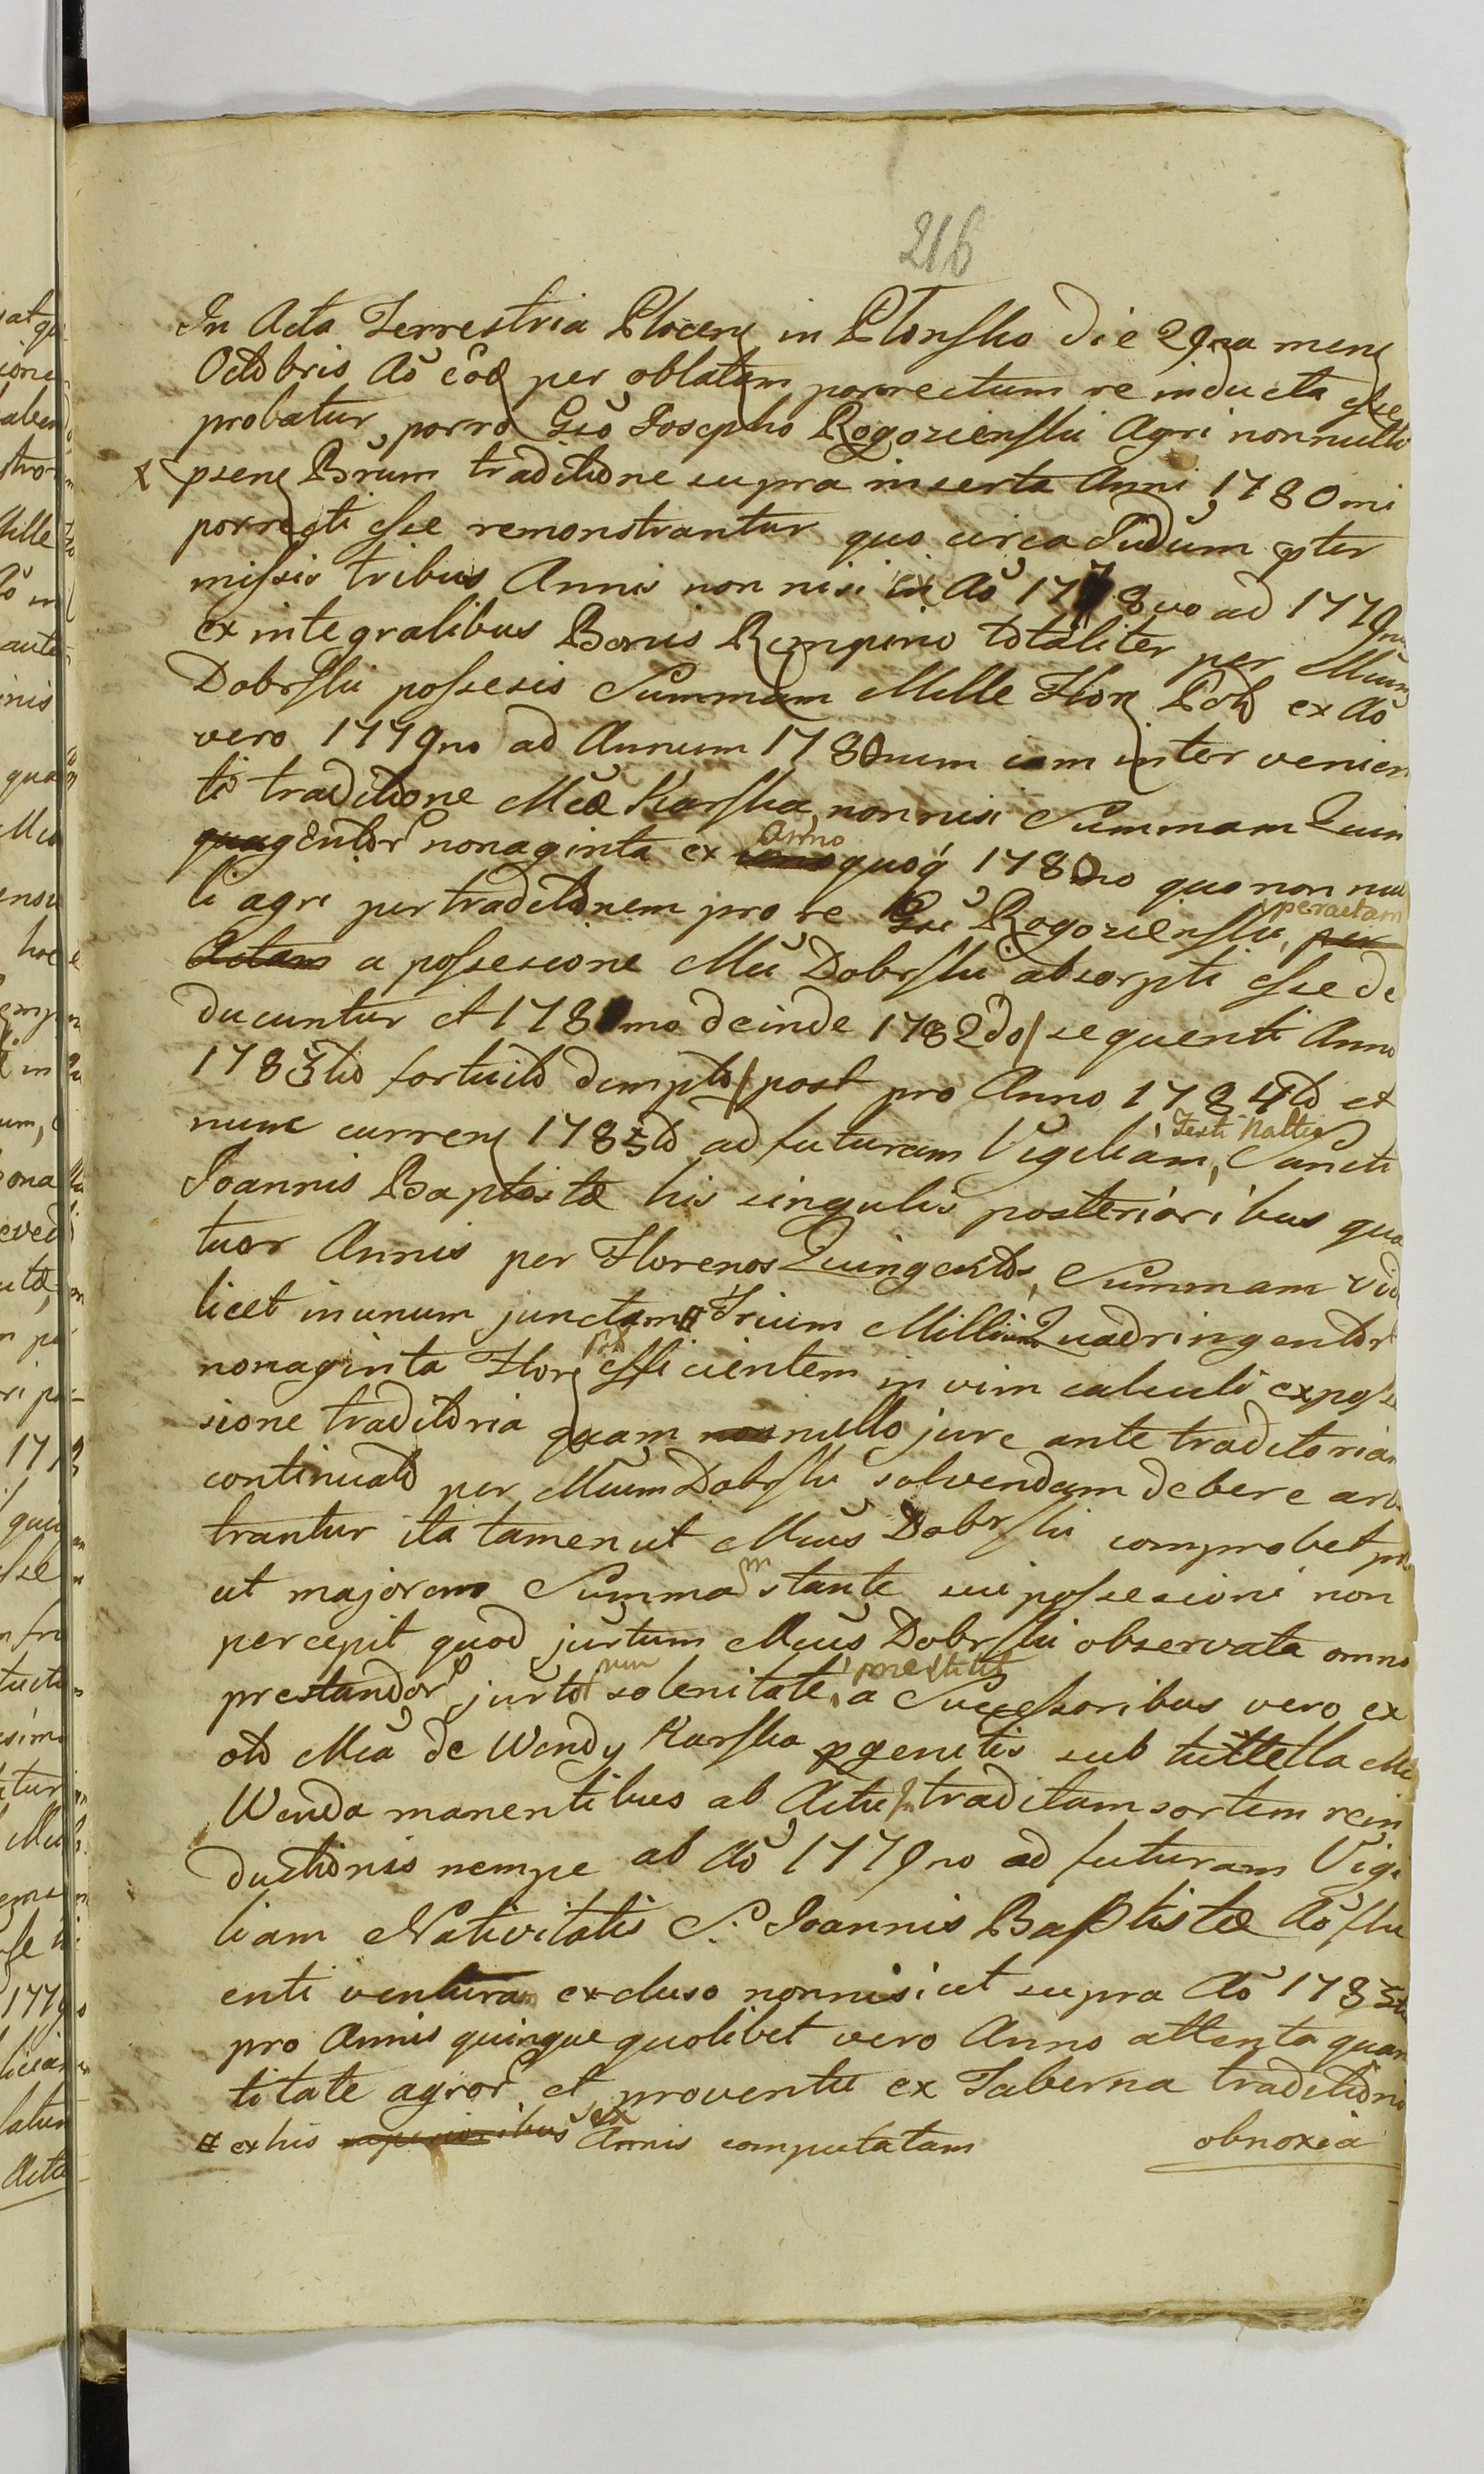 216
In Acta Terrestria Plocens in Plonsko die 29na mens
Octobris Aõ eõd per oblatam porrectum re inducta esse
probatur, porro Gsõ Josepho Rogozienski Agri nonnulli
psens Bňrum traditione supra inserta Anni 1780mi
porrecti esse remonstrantur quo circa dudum pter
missis tribus Annis non nisi ex Aõ 1778vo ad 1779n
ex integralibus Bonis Rempino totaliter per Mĩum
Dobrski possesis Summam Mille Flor Pol ex Aõ
vero 1779no ad Annum 1780num cum inter venien
ti traditione Mĩa Karska nonnisi Summam Quin
gentor nonaginta ex Anno quoq 1780no quo non nul
li agri per traditionem pro re Gsi Rogozienski, peractam
a possesione Mĩi Dobrski absorpti esse de
ducuntur et 1781mo deinde 1782do/ sequenti Anno
1783tio fortuito dempto/ post pro Anno 1784to et
nunc currens 1785to ad futuram Vigiliam, Festi Nattis Sancti
Joannis Baptistæ his singulis posterioribus qua
tuor Annis per Florenos Quingentos, Summam vid
licet in unum junctam # Trium Millium Quadringentor
nonaginta Flor Pol efficientem in vim calculi ex posse
sione traditoria quam nullo jure ante traditoriam
continuato per Mĩum Dobrski solvendam debere arb
trantur ita tamen ut Mĩus Dobrski comprobet pro
ut majorem Summam stante sui possesioni non
percepit quod justum Mĩus Dobrski observata omno
prestandor jurto num solenitate, prestitit a Successoribus vero ex
olo Mĩa de Wendy Karska pgenitis sub tuttella Mĩ
Wenda manentibus ab Actu in traditam sortem rein
ductionis nempe ab Aõ 1779no ad futuram Vigi
liam Nativitatis S. Joannis Baptistæ Aõ flu
enti venturam excluso nonnisi ut supra Aõ 1783tio
pro Annis quinque quolibet vero Anno attenta quan
titate agror et proventu ex Taberna traditioni
# ex his ex Annis computatam
obnoxia